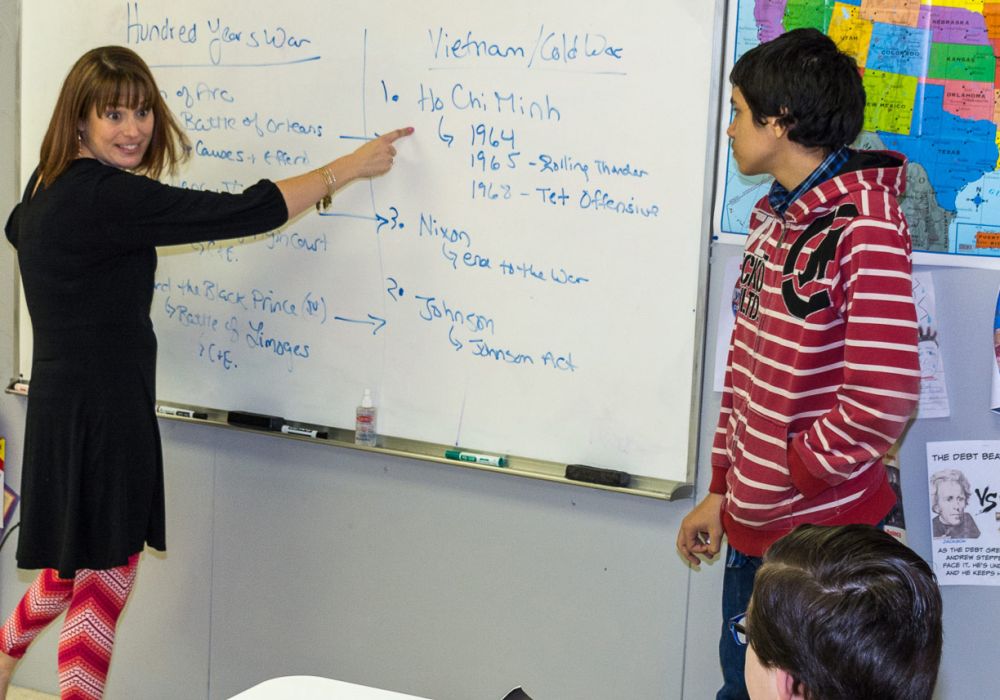 Hundred Years War
of Arc
Battle of Orleans
Causes + Effects
Agincourt
C+E.
the Black Prince
Battle of Limoges
C+E.
Vietnam/Cold War
1. Ho Chi Minh
1964
1965 - Rolling Thunder
1968 - Tet Offensive
3. Nixon
end to the War
2. Johnson
Johnson Act
UTAH
COLORADO
NEBRASKA
KANSAS
NEW MEXICO
OKLAHOMA
TEXAS
LTD.
THE DEBT BEA
VS
JACKSON
AS THE DEBT GRE
ANDREW STEPPE
FACE IT, HE'S UN
AND HE KEEPS H